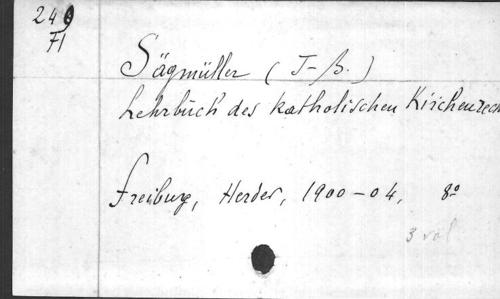 249
F1
Sägmüller (J-B.)
Lehrbuch des katholischen Kirchenrech
Freiburg, Herder, 1900-04, 8°
3 vol